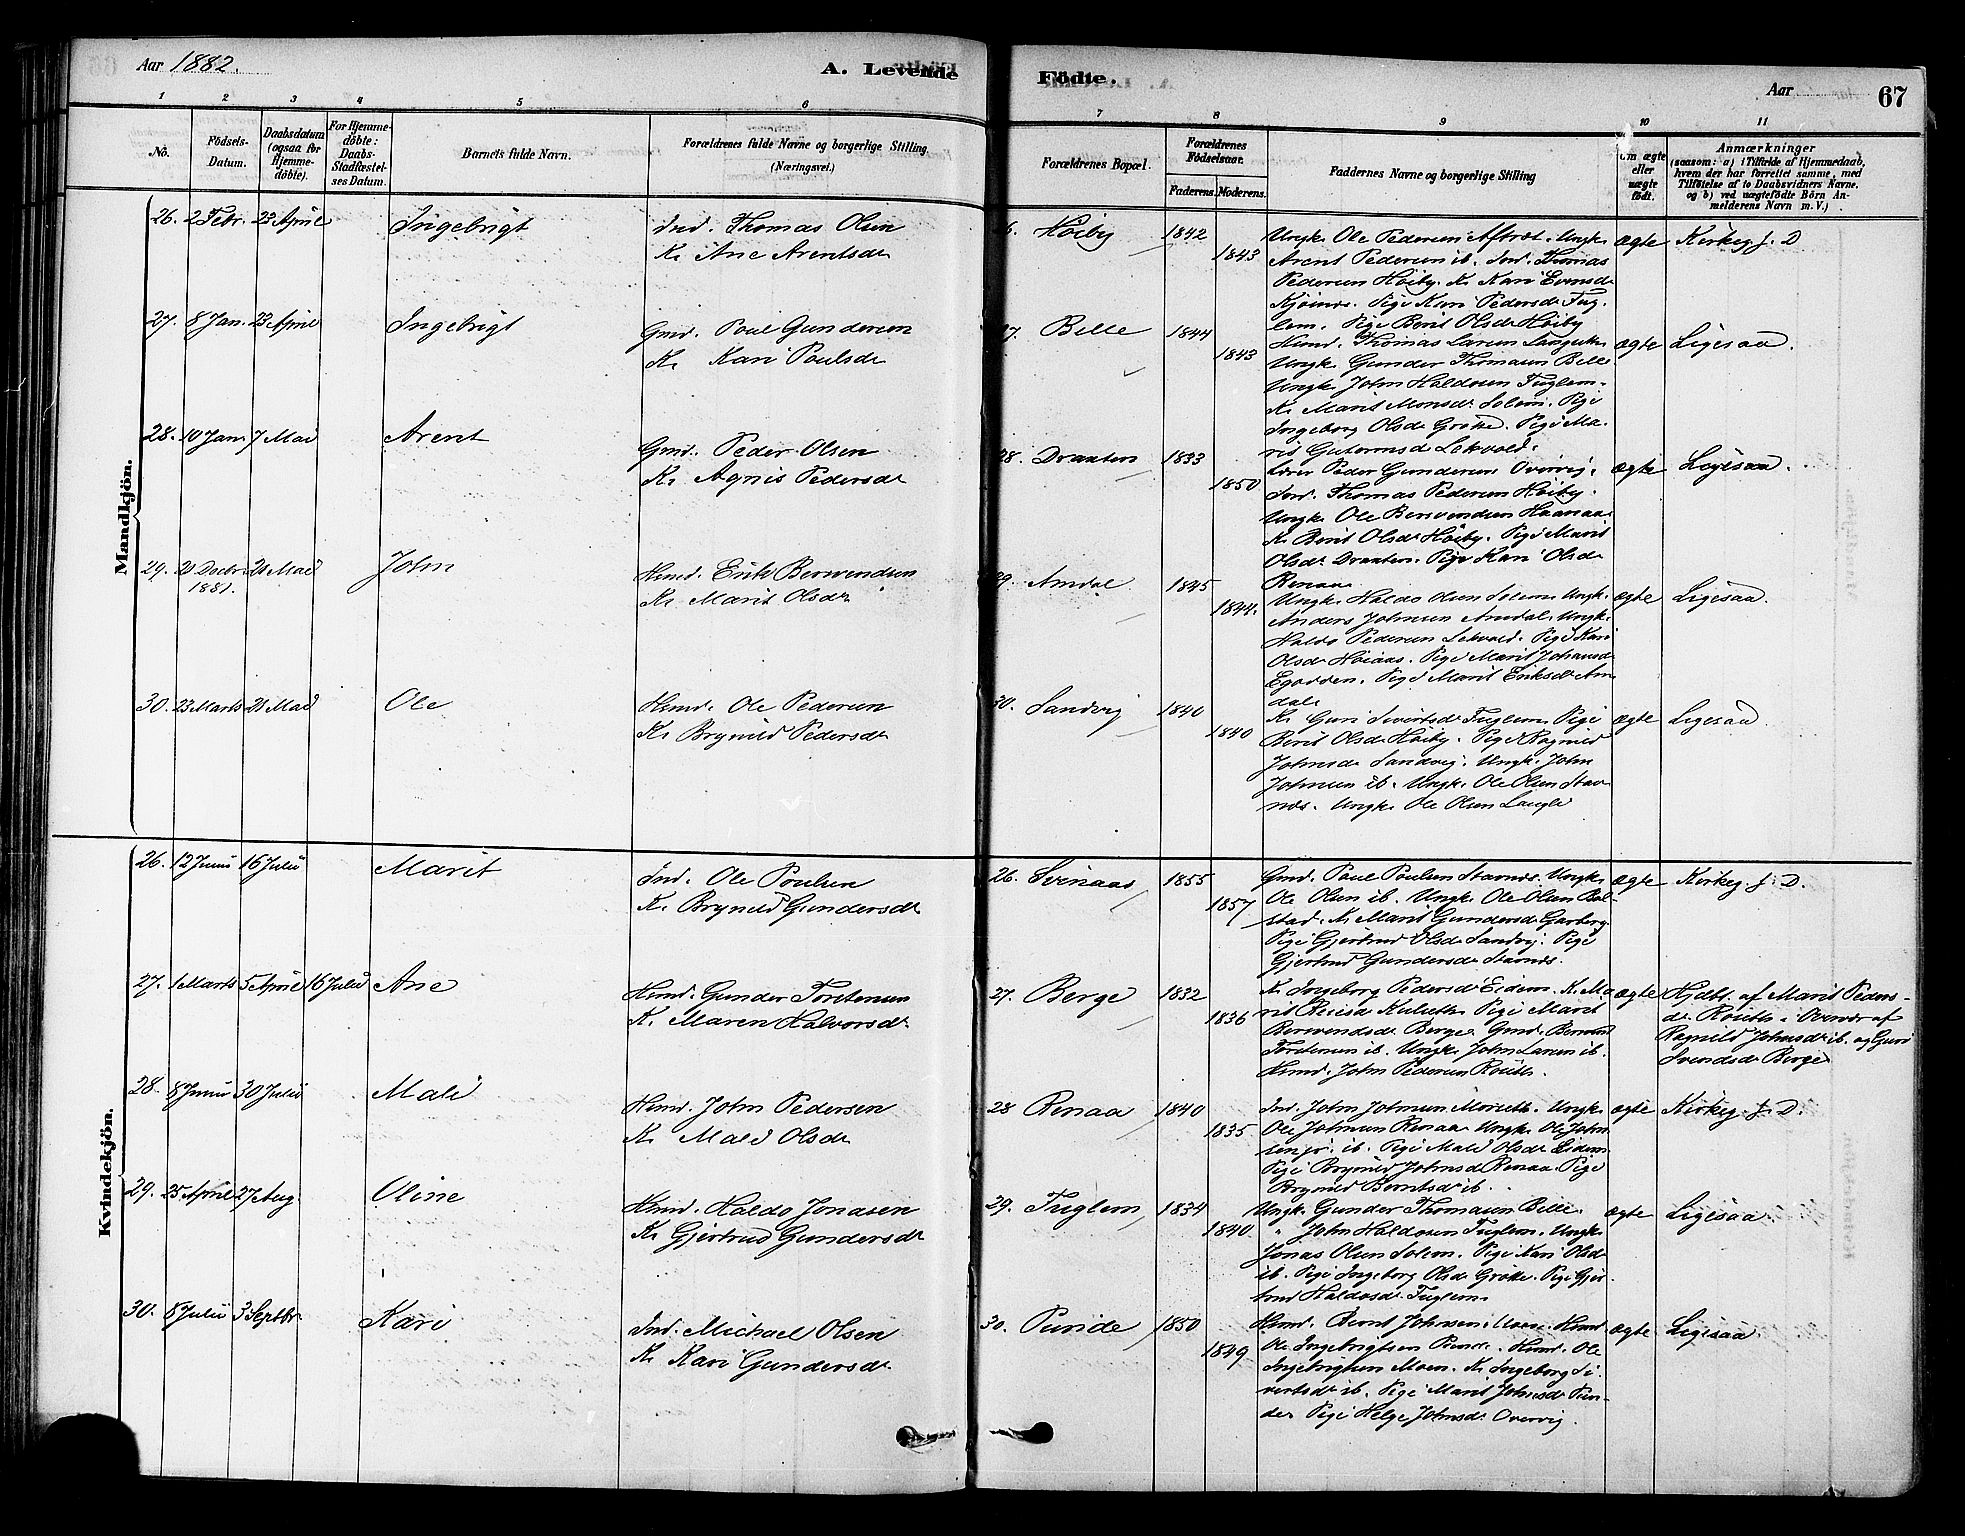 Aar 1882.
A. Levende
Födte.
Aar
67
1 2 3 4 5 6 7 8 9 10 11
No.
Födsels-Datum.
Daabsdatum (ogsaa for Hjemmedöbte).
For Hjemmedöbte: Daabs-Stadfæstelses Datum.
Barnets fulde Navn.
Forældrenes fulde Navne og borgerlige Stilling (Næringsvei.)
Forældrenes Bopæl.
Forældrenes Födselsaar.
Faderens. Moderens.
Faddernes Navne og borgerlige Stilling
Om ægte eller uægte födt.
Anmærkninger
(saasom: a) i Tilfælde af Hjemmedaab,
hvem der har forrettet samme, med
Tilföielse af to Daabsvidners Navne.
og b) ved uægtefödte Börn An-
melderens Navn m. V.)
Mandkjön.
26. 2 Febr. 23 April Ingebrigt
Ind. Thomas Olsen
K. Ane Arentsdr
Höiby 1842 1843
Ungk. Ole Pedersen Aftret. Ungk.
Arent Pedersen ib. Ind. Thomas
Pedersen Höiby. K. Kari Evensdr
Kjösnes. Pige Kari Pedersdr Fug-
lem. Pige Berit Olsdr Höiby
ægte Kirkeg. f. D
27. 8 Jan. 23 April Ingebrigt
Gmd. Poul Gundersen
K. Kari Poulsdr
Belle 1844 1843
Husmd. Thomas Larsen
Ungk. Gunder Thomasen Belle
Ungk. John Haldosen Fuglem.
K. Marit Monsdr Solem. Pige
Ingeborg Olsdr Grötte. Pige Ma-
rit Gutormsdr Lekvold.
ægte Ligesaa.
28. 10 Jan. 7 Mai Arent
Gmd. Peder Olsen
K. Agnis Pedersdr
28. Draaten 1833 1850
Lærer Peder Gundersen Overvig.
Ind. Thomas Pedersen Höiby.
Ungk. Ole Bersvendsen
K. Berit Olsdr Höiby. Pige Marit
Olsdr Draaten. Pige Kari Olsdr
Renaa
ægte Ligesaa.
29. 21 Decbr. 1881. 21 Mai John
Husmd. Erik Bersvendsen
K. Marit Olsdr
29. Amdal 1845 1844.
Ungk. Haldo Olsen Solem. Ungk.
Anders Johnsen Amdal. Ungk.
Haldo Pedersen Lekvold. Pige Kari
Olsdr Höiaas. Pige Marit Johansdr
Pige Marit Eriksdr Am
dal
ægte Ligesaa.
30. 23 Marts 21 Mai Ole
Husmd. Ole Pedersen
K. Brynild Pedersdr
30. Sandvig 1840 1840
K. Guri Sivertsdr Fuglem. Pige
Berit Olsdr Höiby. Pige Ragnild
Johnsdr Sandvig. Ungk. John
Johnsen ib. Ungk. Ole Olsen Stav-
nes. Ungk. Ole Olsen Langli
ægte Ligesaa.
Kvindekjön.
26. 12 Juni 16 Juli Marit
Ind. Ole Poulsen
K. Brynild Gundersdr
26. Svinaas 1855 1857
Gmd. Paul Paulsen Stavnes. Ungk.
Ole Olsen ib. Ungk. Ole Olsen Bol-
stad. K. Marit Gundersdr Garberg.
Pige Gjertrud Olsdr Sandvig. Pige
Gjertrud Gundersdr Stavnes.
ægte Kirkeg. f. D.
27. 1 Marts 5 April 16 Juli Ane
Husmd. Gunder Torstensen
K. Maren Halvorsdr
27. Berge 1832 1836
K. Ingeborg Pedersdr Eidem. K. Ma
rit Pige Marit
Bersvendsdr Berge. Gmd.
Torstensen ib. Ungk. John Larsen ib.
Husmd. John Pedersen Röseth.
ægte Hjdbt. af Marit Peders-
dr Röseth i Overvær af
Ragnild Johnsdr ib. og Guri
Svendsdr Berge
28. 8 Juni 30 Juli Mali
Husmd. John Pedersen
K. Mali Olsdr
28 Renaa 1840 1835
Ind. John Johnsen Morseth. Ungk.
Ole Johnsen Renaa Ungk. Ole John-
sen jr. ib. Pige Mali Olsdr Eidem
Pige Brynild Johnsdr Renaa Pige
Brynild Berntsdr ib.
ægte Kirkeg. f. D.
29. 25 April 27 Aug. Oline
Husmd. Haldo Jonasen
K. Gjertrud Gundersdr
29. Fuglem 1834 1840
Ungk. Gunder Thomasen Belle.
" John Haldosen Fuglem. Ungk.
Jonas Olsen Solem. Pige Kari Olsdr
ib. Pige Ingeborg Olsdr Grötte. Pige Gjer
trud Haldosdr Fuglem
ægte Ligesaa.
30. 8 Juli 3 Septbr. Kari
Ind. Michael Olsen
K. Kari Gundersdr
30. Turide 1850 1849
Husmd. Bernt Johnsen Husmd
Ole Ingebrigtsen Husmd. Ole
Ingebrigtsen Moen. K. Ingeborg Si-
vertsdr ib. Pige Marit Johnsdr
Pige Helge Johnsdr Overvig.
ægte Ligesaa.